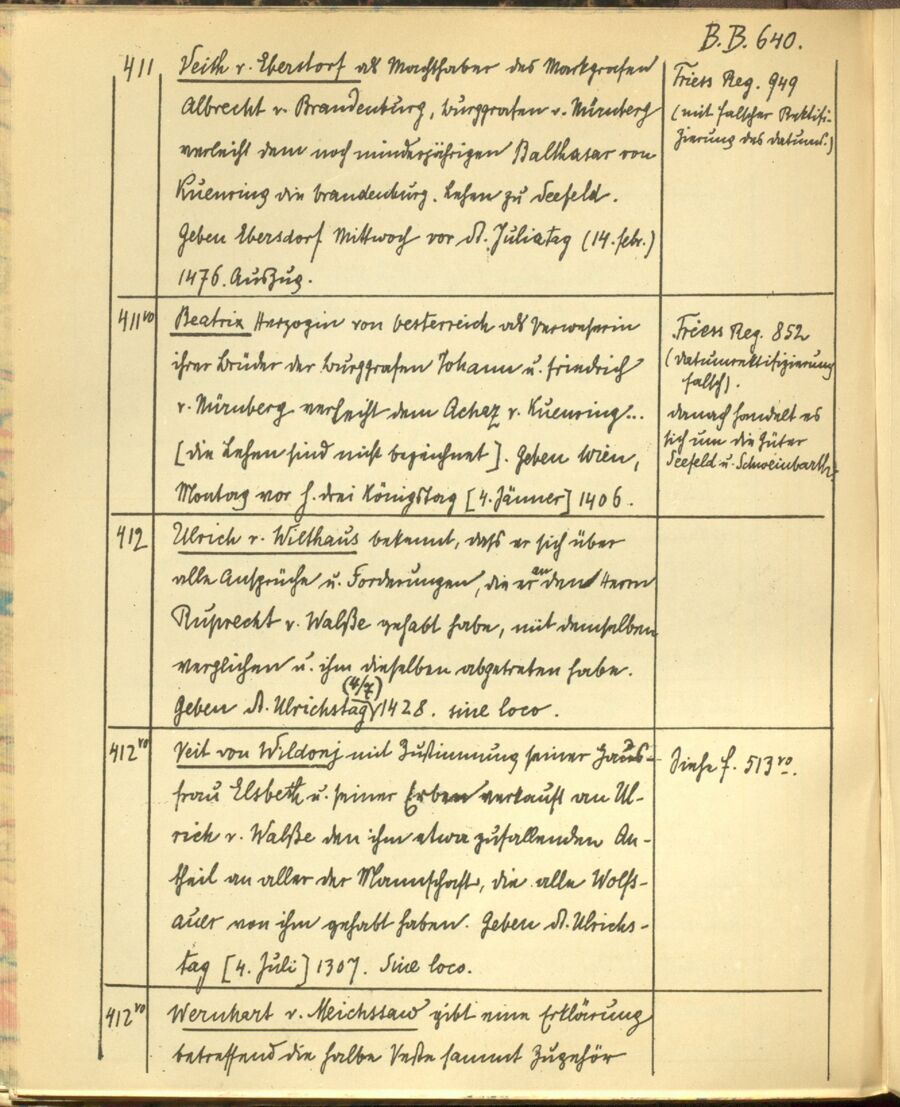 B.B. 640.
411 Veith v. Eberstorf als Machthaber des Markgrafen
Albrecht v. Brandenburg, Burggrafen v. Nürnberg
verleiht dem noch minderjährigen Balthasar von
Kuenring die brandenburg. Lehen zu Seefeld.
Geben Ebersdorf Mittwoch vor St. Juliatag (14. Febr.)
1476. Auszug.
Friess Reg. 949
(mit falscher Rektifi-
zierung des Datums.)
411vo Beatrix Herzogin von Oesterreich als Verweserin
ihrer Brüder der Burggrafen Johann u. Friedrich
v. Nürnberg verleiht dem Achaz v. Kuenring...
[die Lehen sind nicht bezeichnet]. Geben Wien,
Montag vor h. drei Königstag [4. Jänner] 1406.
Friess Reg. 852
(Datumrektifizierung
falsch).
danach handelt es
sich um die Güter
Seefeld u. Schweinbarth.
412 Ulrich v. Wilthaus bekennt, dass er sich über
alle Ansprüche u. Forderungen, die er an den Herrn
Ruprecht v. Walsse gehabt habe, mit demselben
verglichen u. ihm dieselben abgetreten habe.
Geben St. Ulrichstag (4/7) 1428. sine loco.
412vo Veit von Wildonj mit Zustimmung seiner Haus-
frau Elsbeth u. seiner Erben verkauft an Ul-
rich v. Walsse den ihm etwa zufallenden An-
theil an aller der Mannschaft, die alle Wolfs-
auer von ihm gehabt haben. Geben St. Ulrichs-
tag [4. Juli] 1307. Sine loco.
Siehe f. 513vo.
412vo Wernhart v. Meichssaw gibt eine Erklärung
betreffend die halbe Veste sammt Zugehör